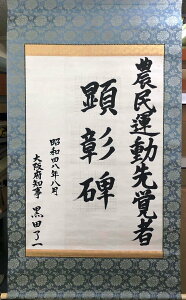 農民運動先覚者
顕彰碑
昭和四八年八月
大阪府知事 黒田了一